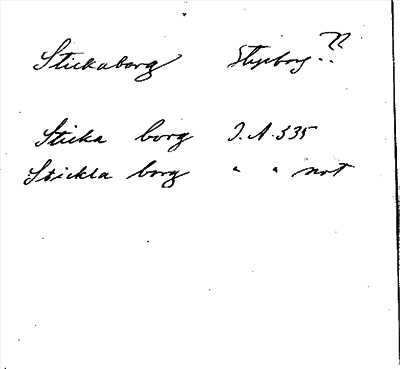 Stickaborg Styrborg??
Sticka borg I.A. 335
Stickla borg " " not